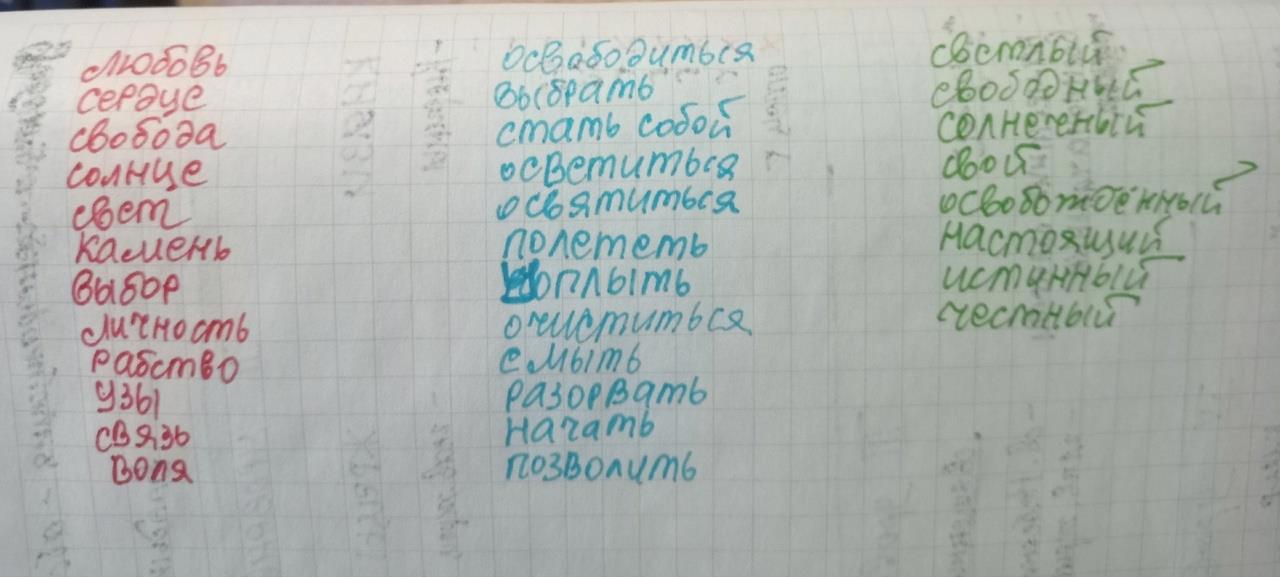 любовь
сердце
свобода
солнце
свет
камень
выбор
личность
рабство
узы
связь
воля
освободиться
выбрать
стать собой
осветиться
освятиться
полететь
поплыть
очиститься
смыть
разорвать
начать
позволить
светлый
свободный
солнечный
свой
освобождённый
настоящий
истинный
честный